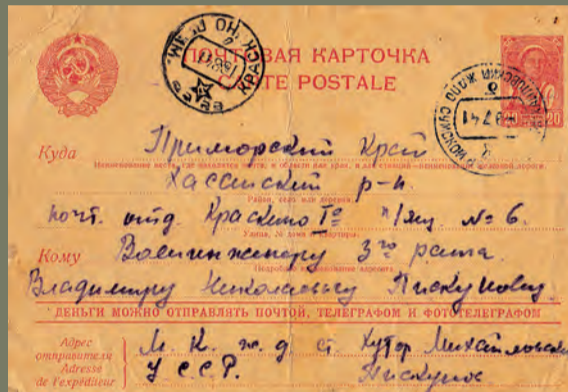 ПОЧТОВАЯ КАРТОЧКА
CARTE POSTALE
20
Куда Приморский Край
Хасанский р-н.
почт. отд. Краскино I° п/ящ. № 6.
Кому Военинженеру 3го ранга.
Владимиру Николаевичу Пискунову.
ДЕНЬГИ МОЖНО ОТПРАВЛЯТЬ ПОЧТОЙ, ТЕЛЕГРАФОМ И ФОТОТЕЛЕГРАФОМ
Адрес отправителя
Adresse de l'expéditeur
М. К. ж. д ст. Хутор Михайловский
У С С Р. Пискунов